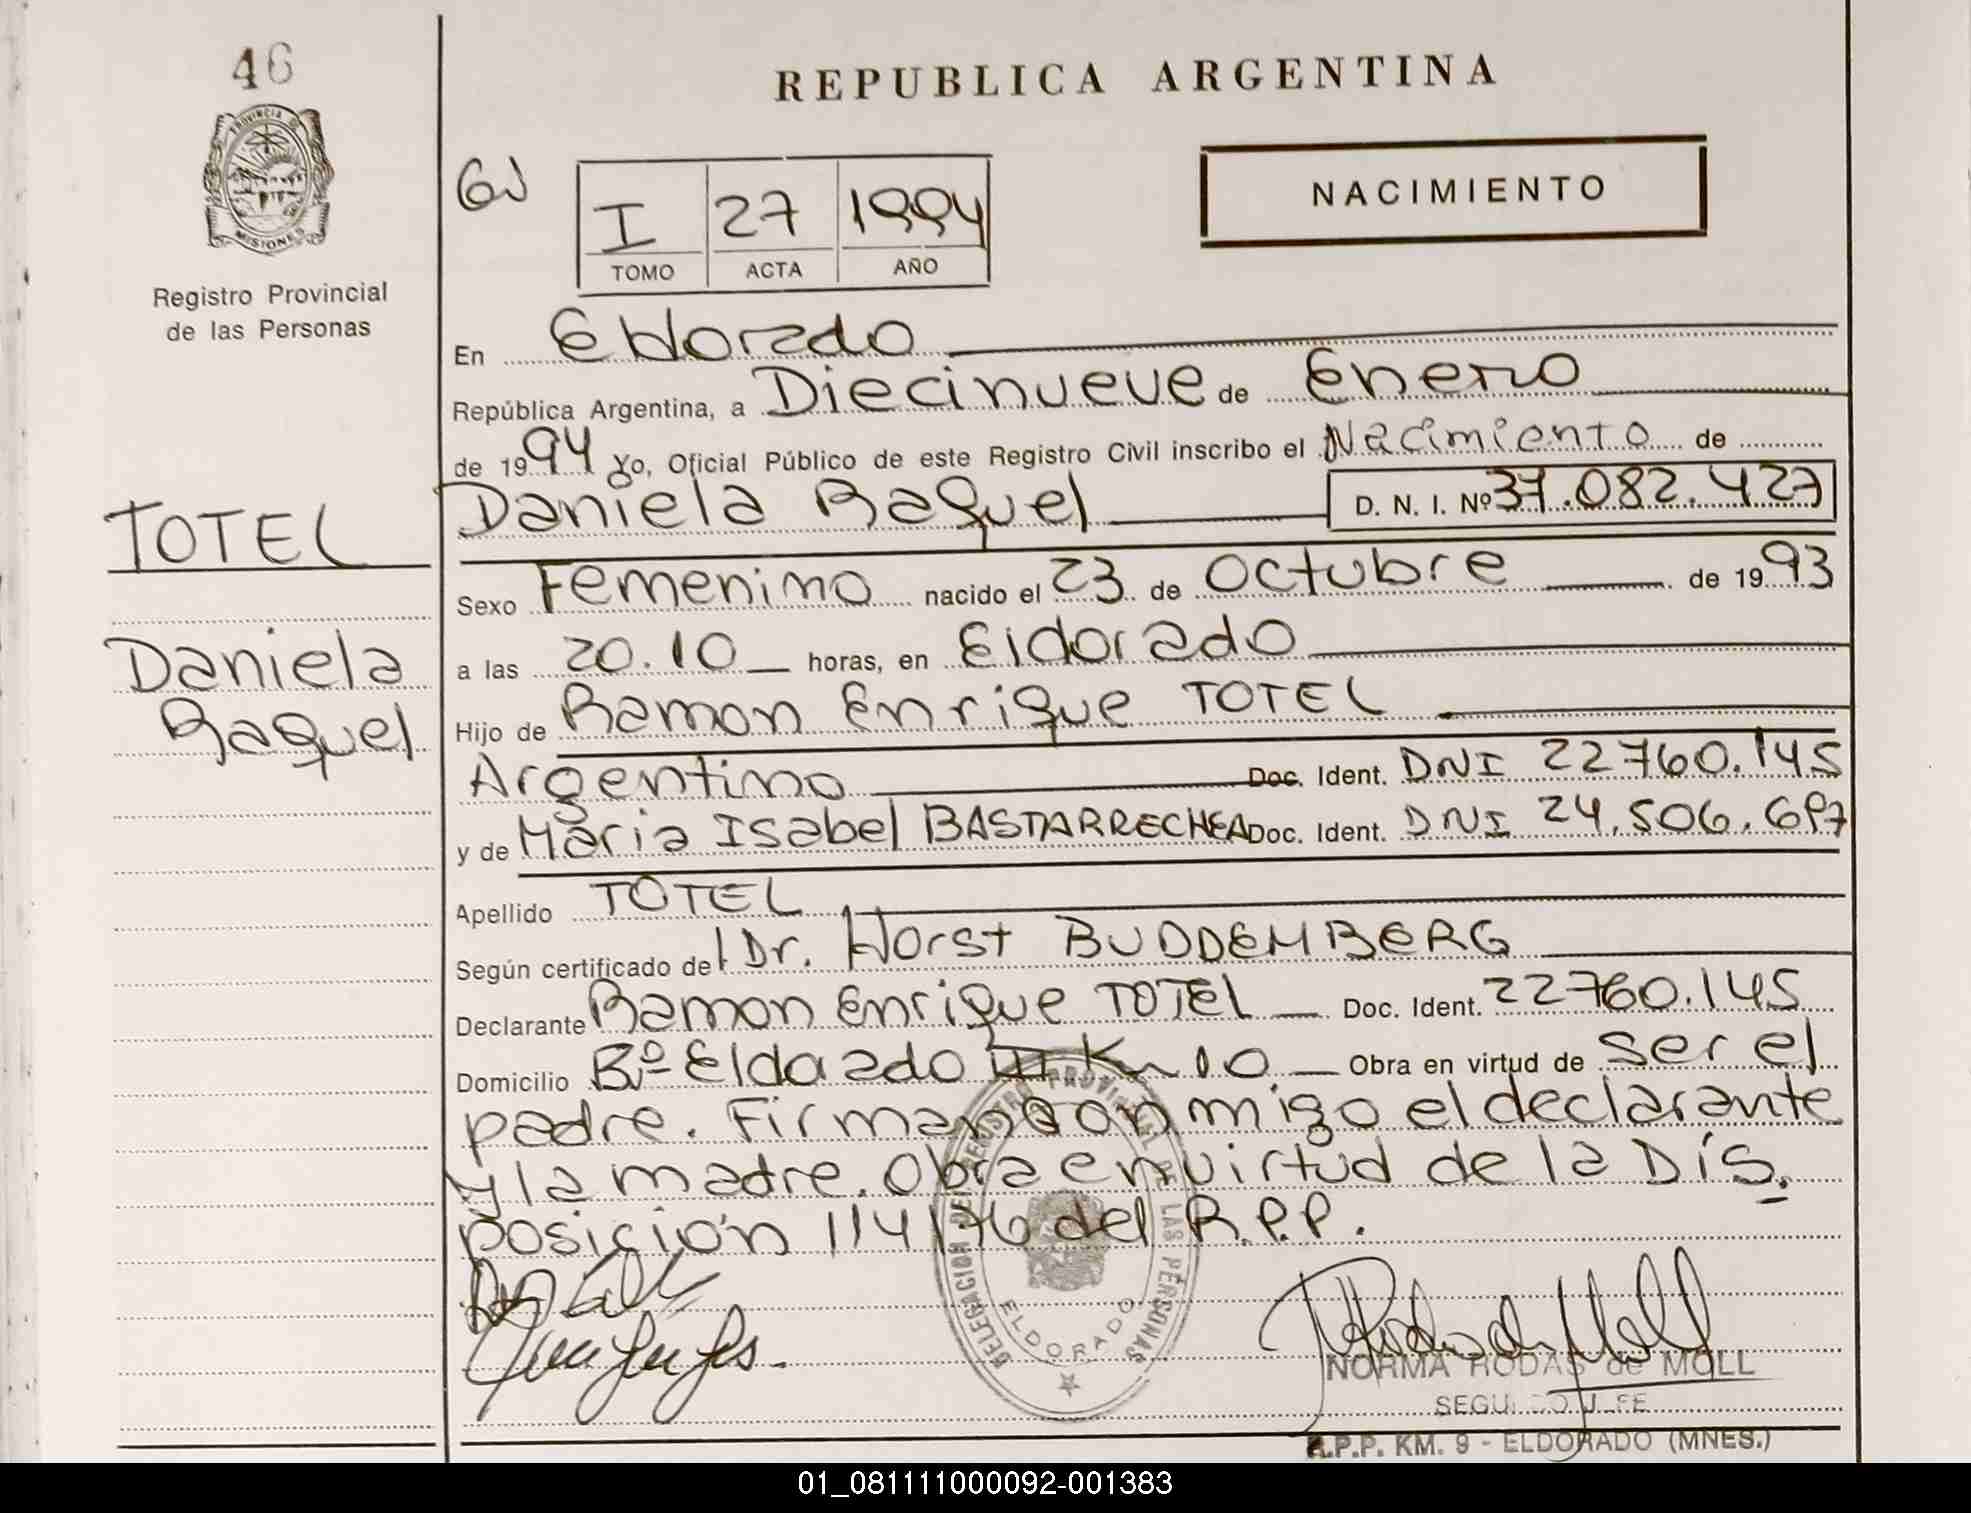 46
PROVINCIA DE
MISIONES
Registro Provincial
de las Personas
TOTEL
Daniela
Raquel
REPUBLICA ARGENTINA
I 27 1994
TOMO ACTA AÑO
NACIMIENTO
En Eldorado
República Argentina, a Diecinueve de Enero
de 1994 Yo, Oficial Público de este Registro Civil inscribo el Nacimiento de
Daniela Raquel D. N. I. Nº 37.082.427
Sexo Femenino nacido el 23 de Octubre de 1993
a las 20.10 horas, en Eldorado
Hijo de Ramon Enrique TOTEL
Argentino Doc. Ident. DNI 22760.145
y de Maria Isabel BASTARRECHEA Doc. Ident. DNI 24.506.697
Apellido TOTEL
Según certificado del Dr. Horst BUDDEMBERG
Declarante Ramon Enrique TOTEL Doc. Ident. 22760.145
Domicilio Bº Eldorado III Km 10 Obra en virtud de ser el
padre. Firman conmigo el declarante
y la madre. Obra en virtud de la Dis.
posición 114/76 del R.P.P.
DELEGACION DEL REGISTRO PROVINCIAL DE LAS PERSONAS
ELDORADO
NORMA RODAS de MOLL
SEGUNDO JEFE
R.P.P. KM. 9 - ELDORADO (MNES.)
01_081111000092-001383